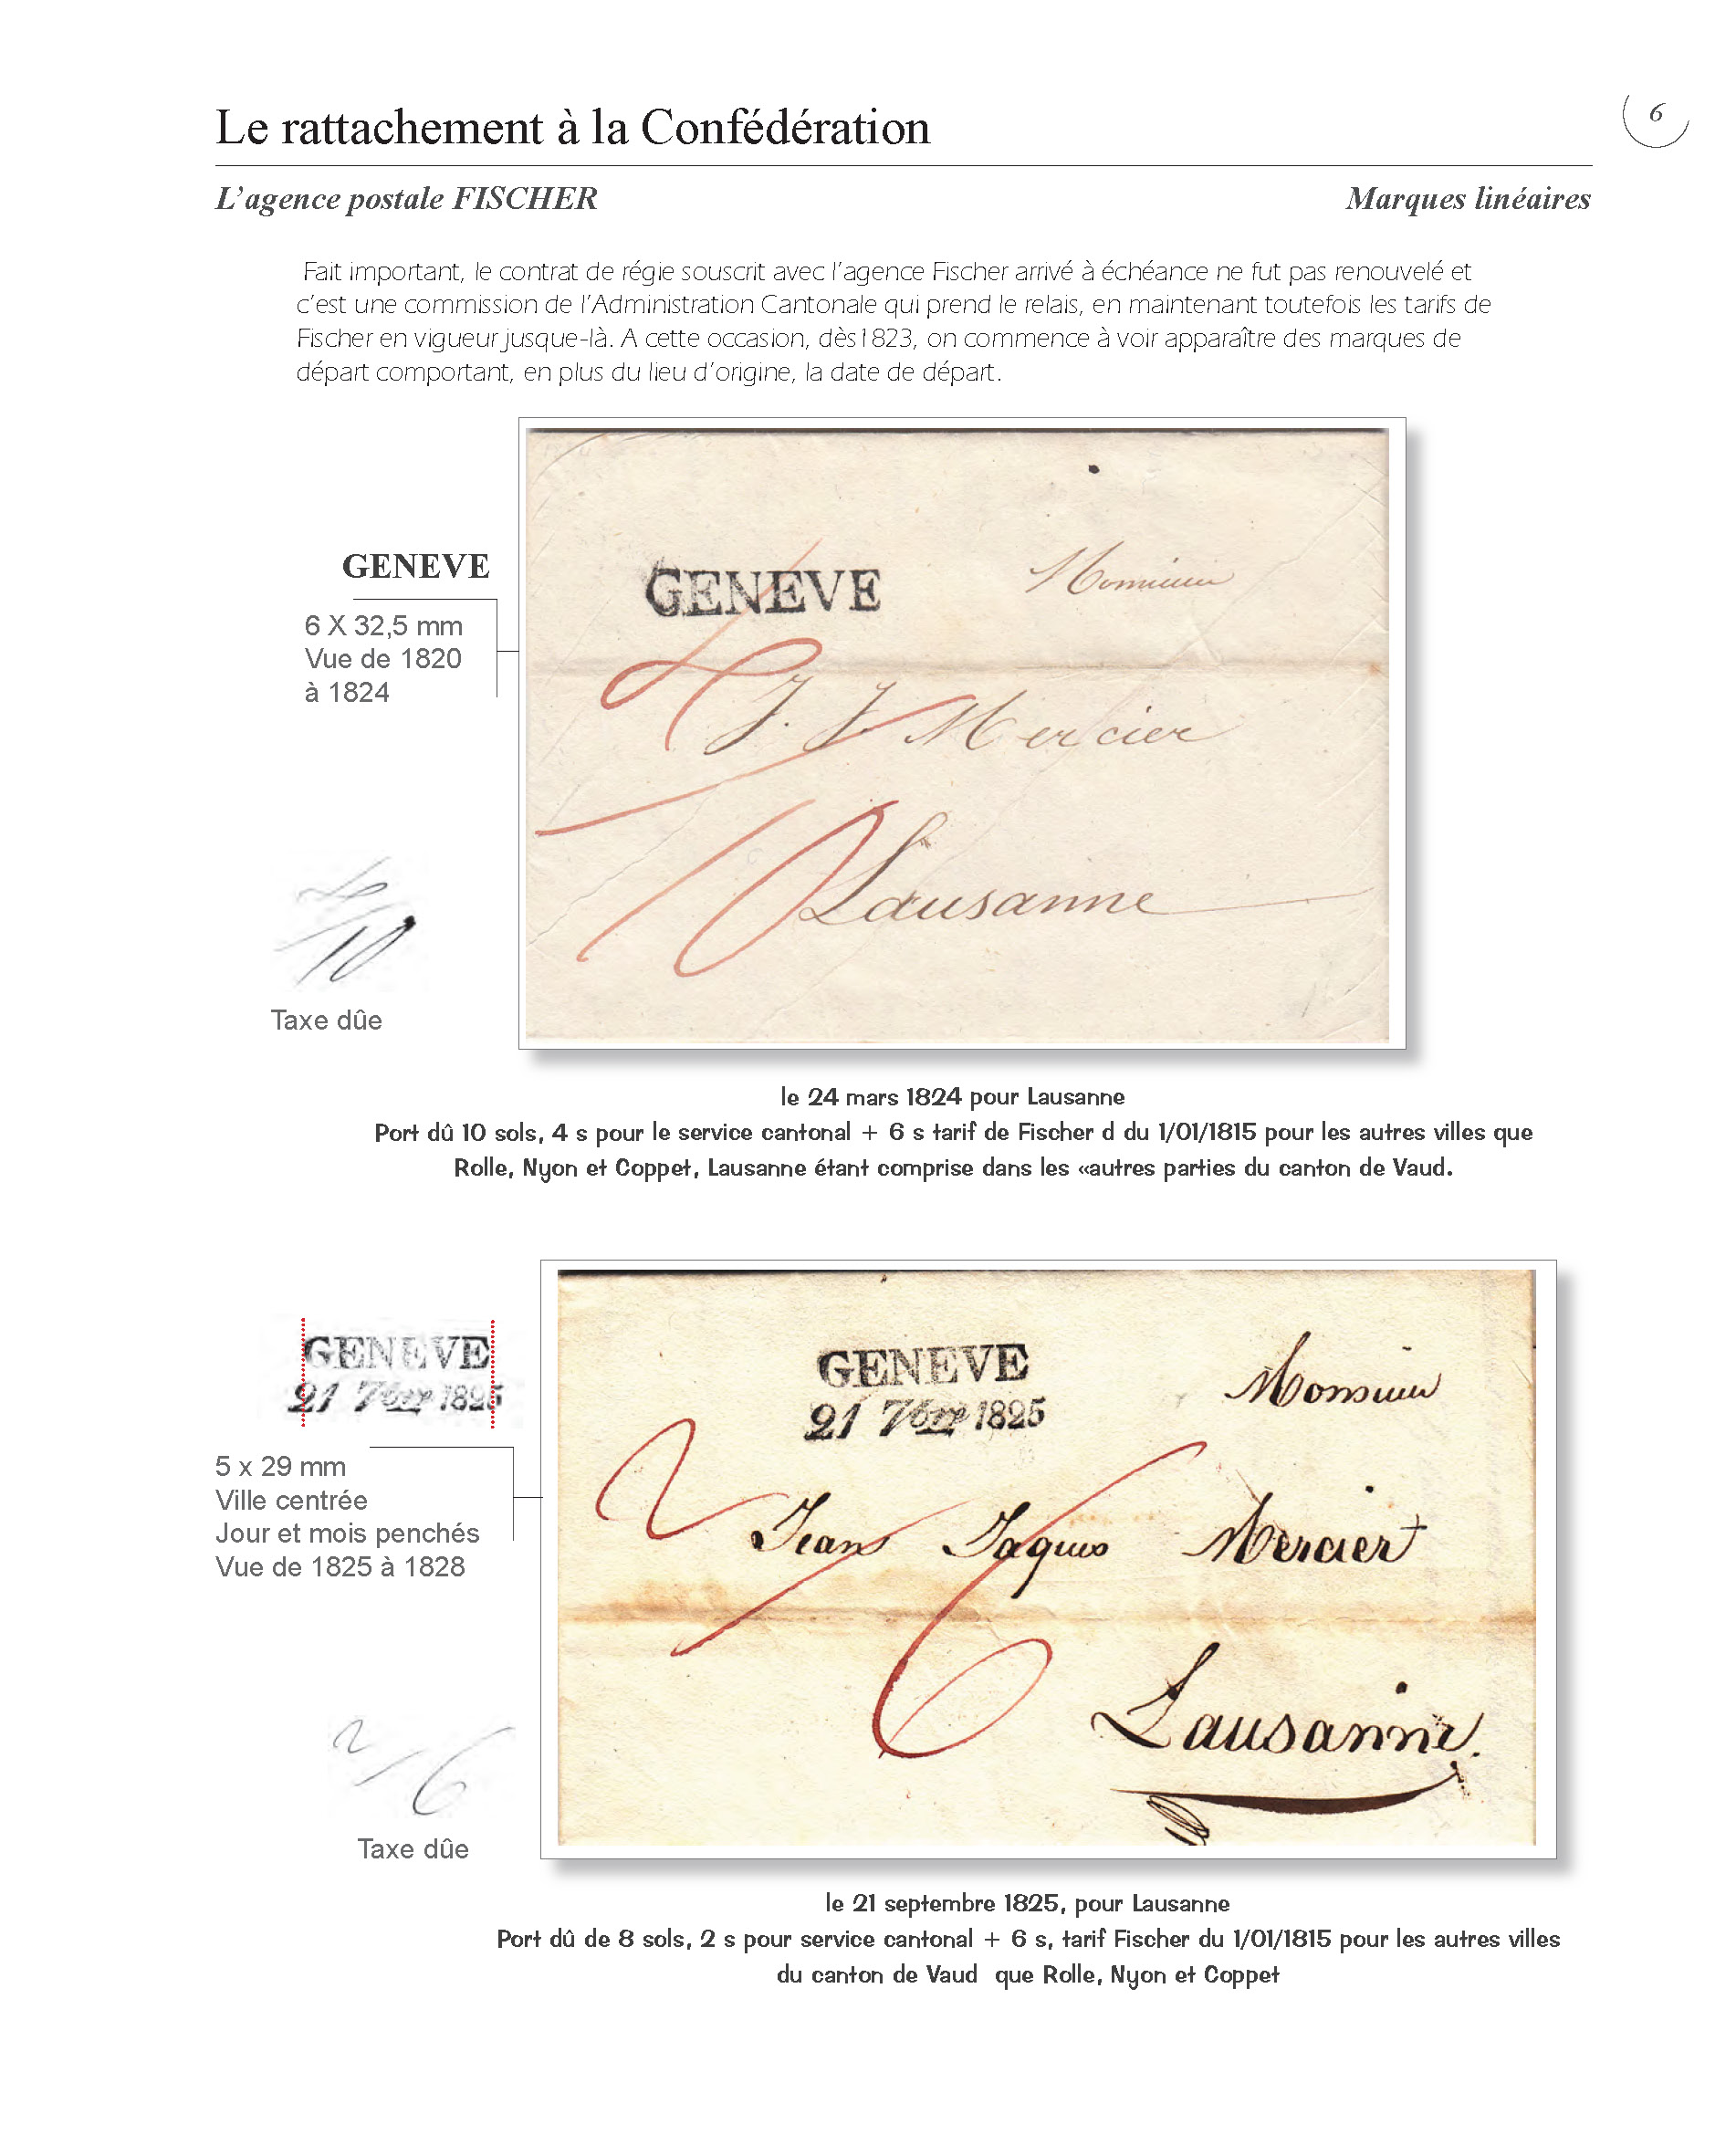 Le rattachement à la Confédération
6
L'agence postale FISCHER
Marques linéaires
Fait important, le contrat de régie souscrit avec l'agence Fischer arrivé à échéance ne fut pas renouvelé et
c'est une commission de l'Administration Cantonale qui prend le relais, en maintenant toutefois les tarifs de
Fischer en vigueur jusque-là. A cette occasion, dès1823, on commence à voir apparaître des marques de
départ comportant, en plus du lieu d'origine, la date de départ.
GENEVE
6 X 32,5 mm
Vue de 1820
à 1824
GENEVE
Monsieur
4
J. J. Mercier
10
Lausanne
4
10
Taxe dûe
le 24 mars 1824 pour Lausanne
Port dû 10 sols, 4 s pour le service cantonal + 6 s tarif de Fischer d du 1/01/1815 pour les autres villes que
Rolle, Nyon et Coppet, Lausanne étant comprise dans les «autres parties du canton de Vaud.
GENEVE
21 7bre 1825
5 x 29 mm
Ville centrée
Jour et mois penchés
Vue de 1825 à 1828
GENEVE
21 7bre 1825
Monsieur
2/6
Jean Jaques Mercier
Lausanne
2/6
Taxe dûe
le 21 septembre 1825, pour Lausanne
Port dû de 8 sols, 2 s pour service cantonal + 6 s, tarif Fischer du 1/01/1815 pour les autres villes
du canton de Vaud que Rolle, Nyon et Coppet